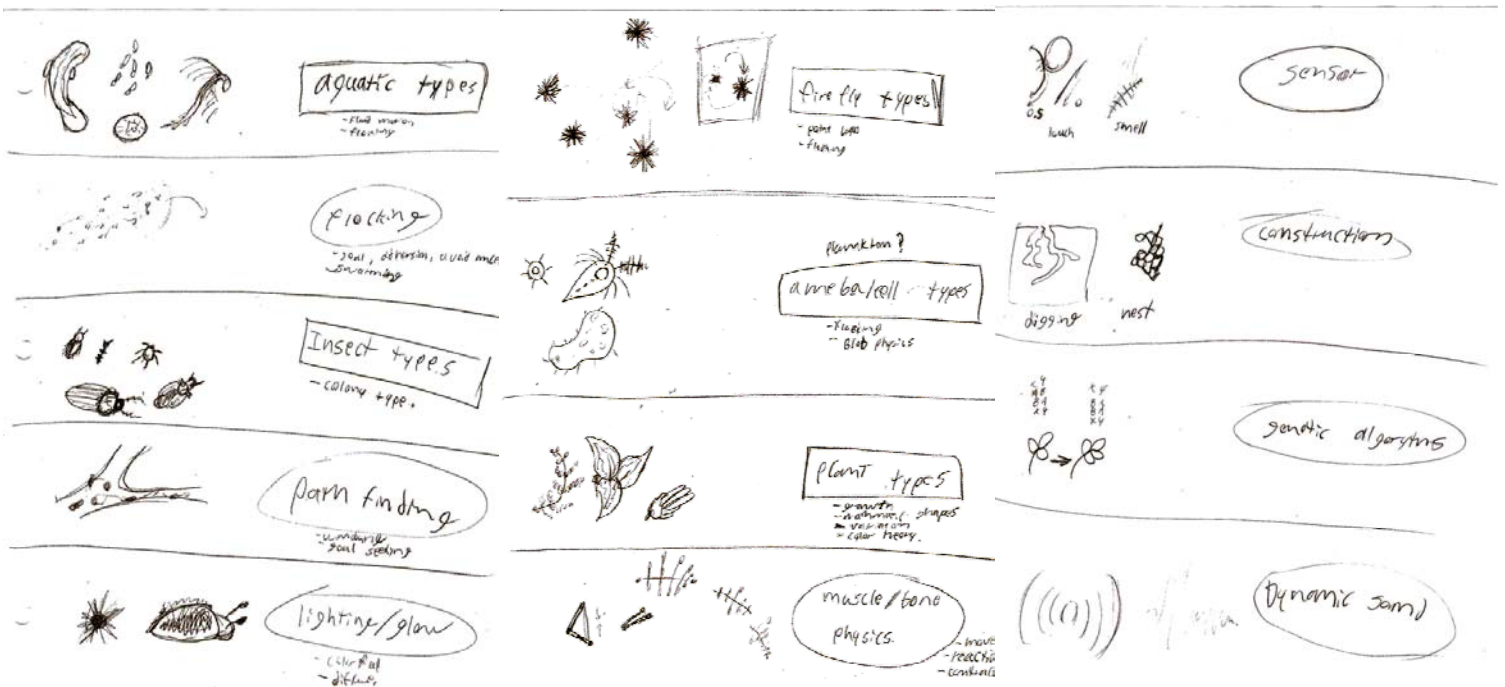 aquatic types
- fluid motion
- floating
flocking
- goal, adhersion, avoid
- swarming
Insect types
- colony type.
path finding
- goal seeking
lighting/glow
- colorful
- difuse,
firefly types
- point
plankton?
ameba/cell types
- Blob physics
plant types
- growth
shapes
- variation
- color theory.
muscle/bone
physics.
- move
- reactio
0.5
touch
smell
sensor
digging
nest
construction
genetic algorytms
Dynamic